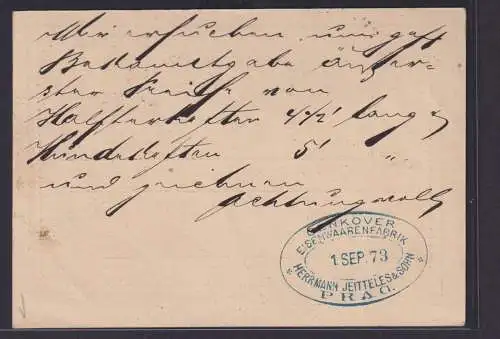 Wir ersuchen um gefl
Bekanntgabe äußer-
ster Preise von
Halfterketten 4 1/2' lang &
Hundeketten 5' "
und zeichnen
achtungsvoll
EISENWAARENFABRIK
1 SEP. 73
HERRMANN JEITTELES & SOHN
PRAG.